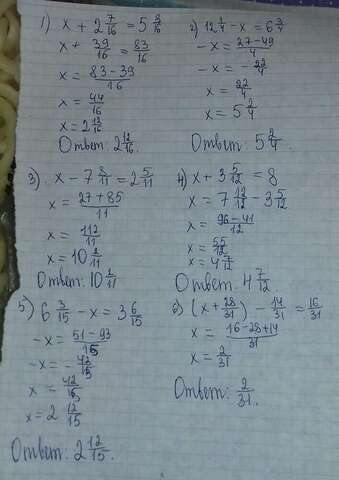 1) x + 2 7/16 = 5 3/16
x + 39/16 = 83/16
x = 83 - 39/16
x = 44/16
x = 2 12/16
Ответ: 2 12/16.
2) 12 1/4 - x = 6 3/4
-x = 27-49/4
-x = - 22/4
x = 22/4
x = 5 2/4
Ответ: 5 2/4.
3) x - 7 8/11 = 2 5/11
x = 27+85/11
x = 112/11
x = 10 2/11
Ответ: 10 2/11
4) x + 3 5/12 = 8
x = 7 12/12 - 3 5/12
x = 96-41/12
x = 55/12
x = 4 7/12
Ответ: 4 7/12
5) 6 3/15 - x = 3 6/15
-x = 51-93/15
-x = - 42/15
x = 42/15
x = 2 12/15
Ответ: 2 12/15.
6) (x + 28/31) - 14/31 = 16/31
x = 16-28+14/31
x = 2/31
Ответ: 2/31.